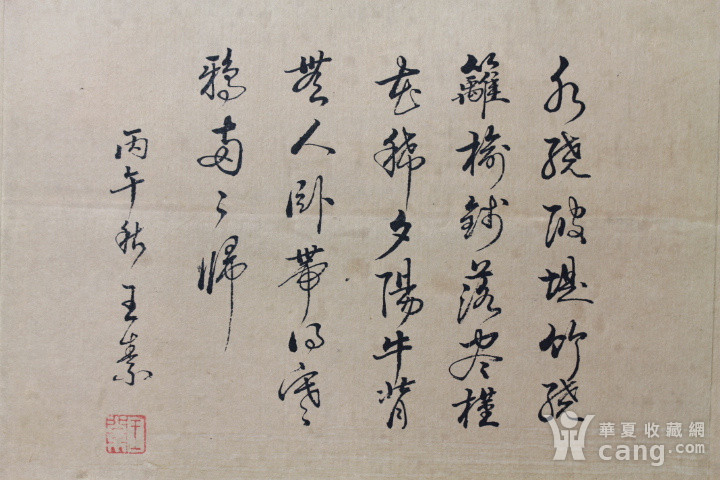 水繞陂堤竹繞
籬榆錢落盡槿
花稀夕陽牛背
無人臥帶得寒
鴉兩〻歸
丙午秋王素
華夏收藏網
cang.com